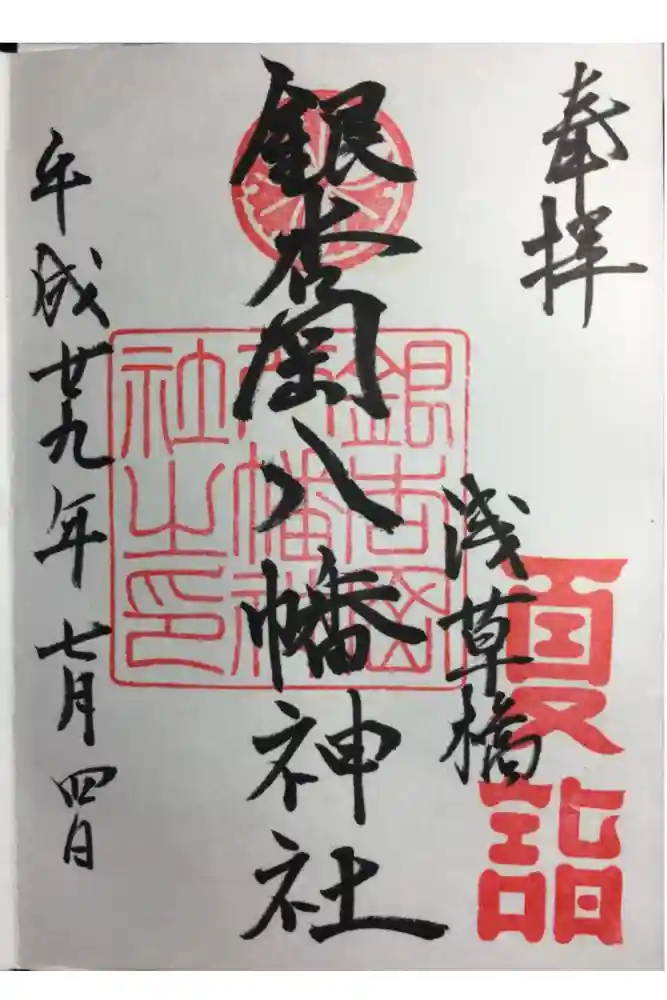 奉拝
夏詣
浅草橋
銀杏岡八幡神社
銀杏岡八幡神社之印
平成廿九年七月四日